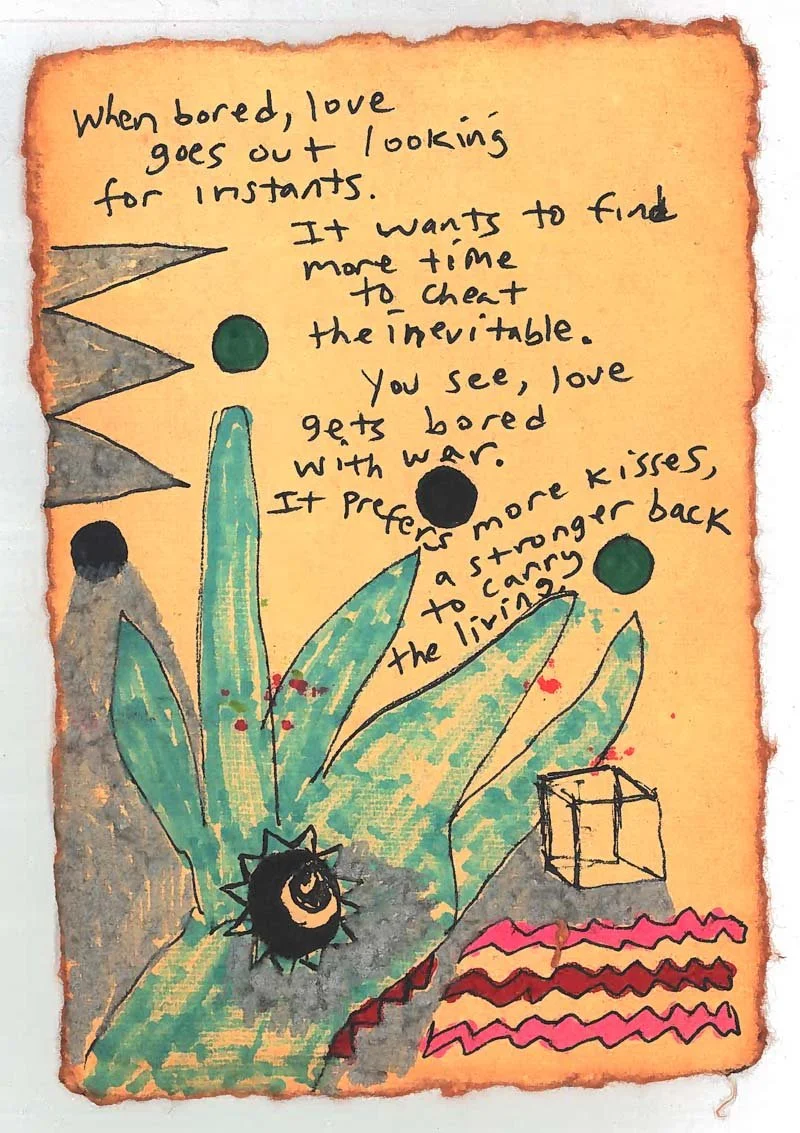 When bored, love
goes out looking
for instants.
It wants to find
more time
to cheat
the inevitable.
You see, love
gets bored
with war.
It prefers more kisses,
a stronger back
to carry
the living.